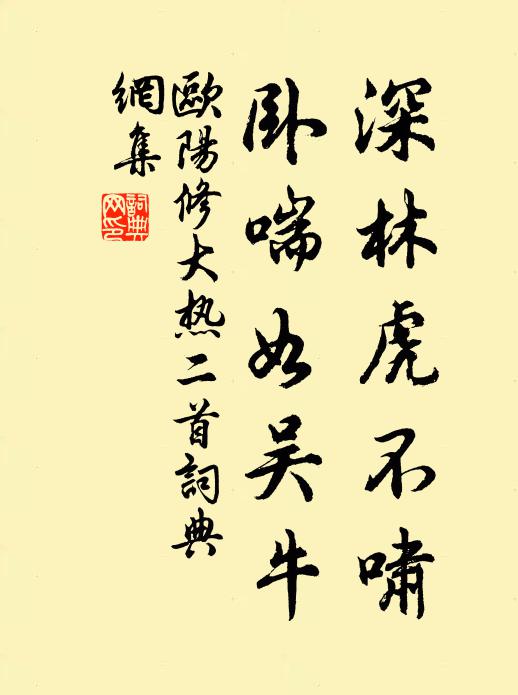 深林虎不嘯
卧喘如吴牛
歐陽修大热二首詞典
網集
詞典
网印